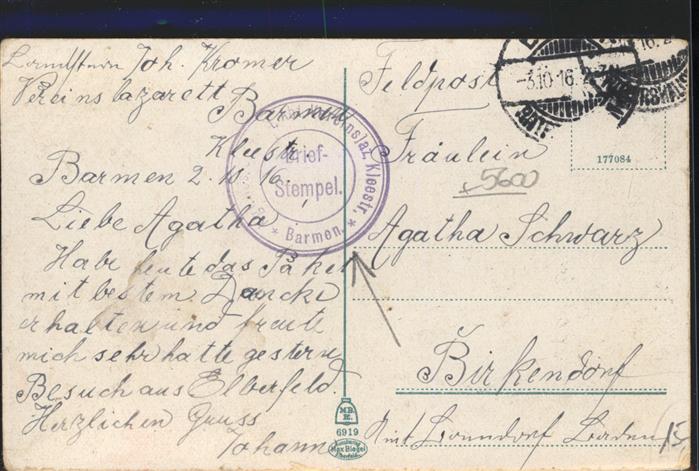 Landsturm Joh. Kromer
Vereinslazarett Barmen
Kleestr.
Barmen 2. 10. 16.
Liebe Agatha
Habe heute das Paket
mit bestem Dancke
erhalten und freute
mich sehr hatte gestern
Besuch aus Elberfeld.
Herzlichen Gruss
Johann
Vereinslaz. Kleestr.
Brief-
Stempel.
* Barmen. *
MB.
K.
6919
Max Biegel
Feldpost
3.10.16.
177084
Fräulein
5600
Agatha Schwarz
Birkendorf
Amt Bonndorf Baden
15